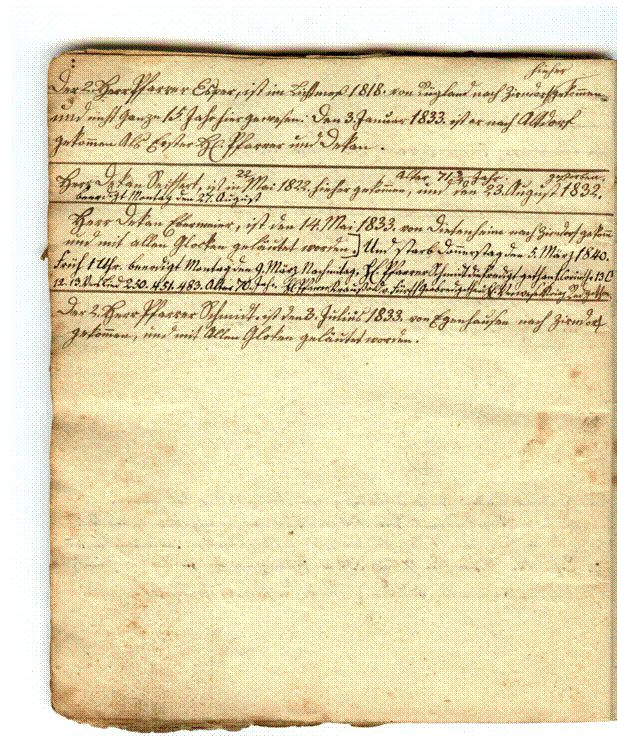 hieher
Der 2. Herr Pfarrer Esper, ist im Lichtmeß 1818. von Rügland nach Zirndorf gekommen
und ist ganze 15 Jahr hier gewesen. Den 3. Januar 1833. ist er nach Altdorf
gekommen Als Erster H. Pfarrer und Dekan.
Alter 71 3/4 Jahr. gestorben.
Herr Dekan Seiffert, ist in 22 Mai 1822. hieher gekommen, und den 23. August 1832.
beerdigt Montag den 27. August
Herr Dekan Ebermeier, ist den 14. Mai 1833. von Dietenheim nach Zirndorf gekom
und mit allen Glocken geläutet worden.] Und starb Donerstag den 5. März 1840.
Früh 1 Uhr. beerdigt Montag den 9. März Nachmitag, H. Pfarrer Schmidt
12. 13. Verlied 250. 451. 483. Alter 70 Jahr.
Der 2. Herr Pfarrer Schmidt, ist den 3. Julius 1833. von Egenhausen nach Zirndorf
gekommen, und mit Allen Gloken geläutet worden.